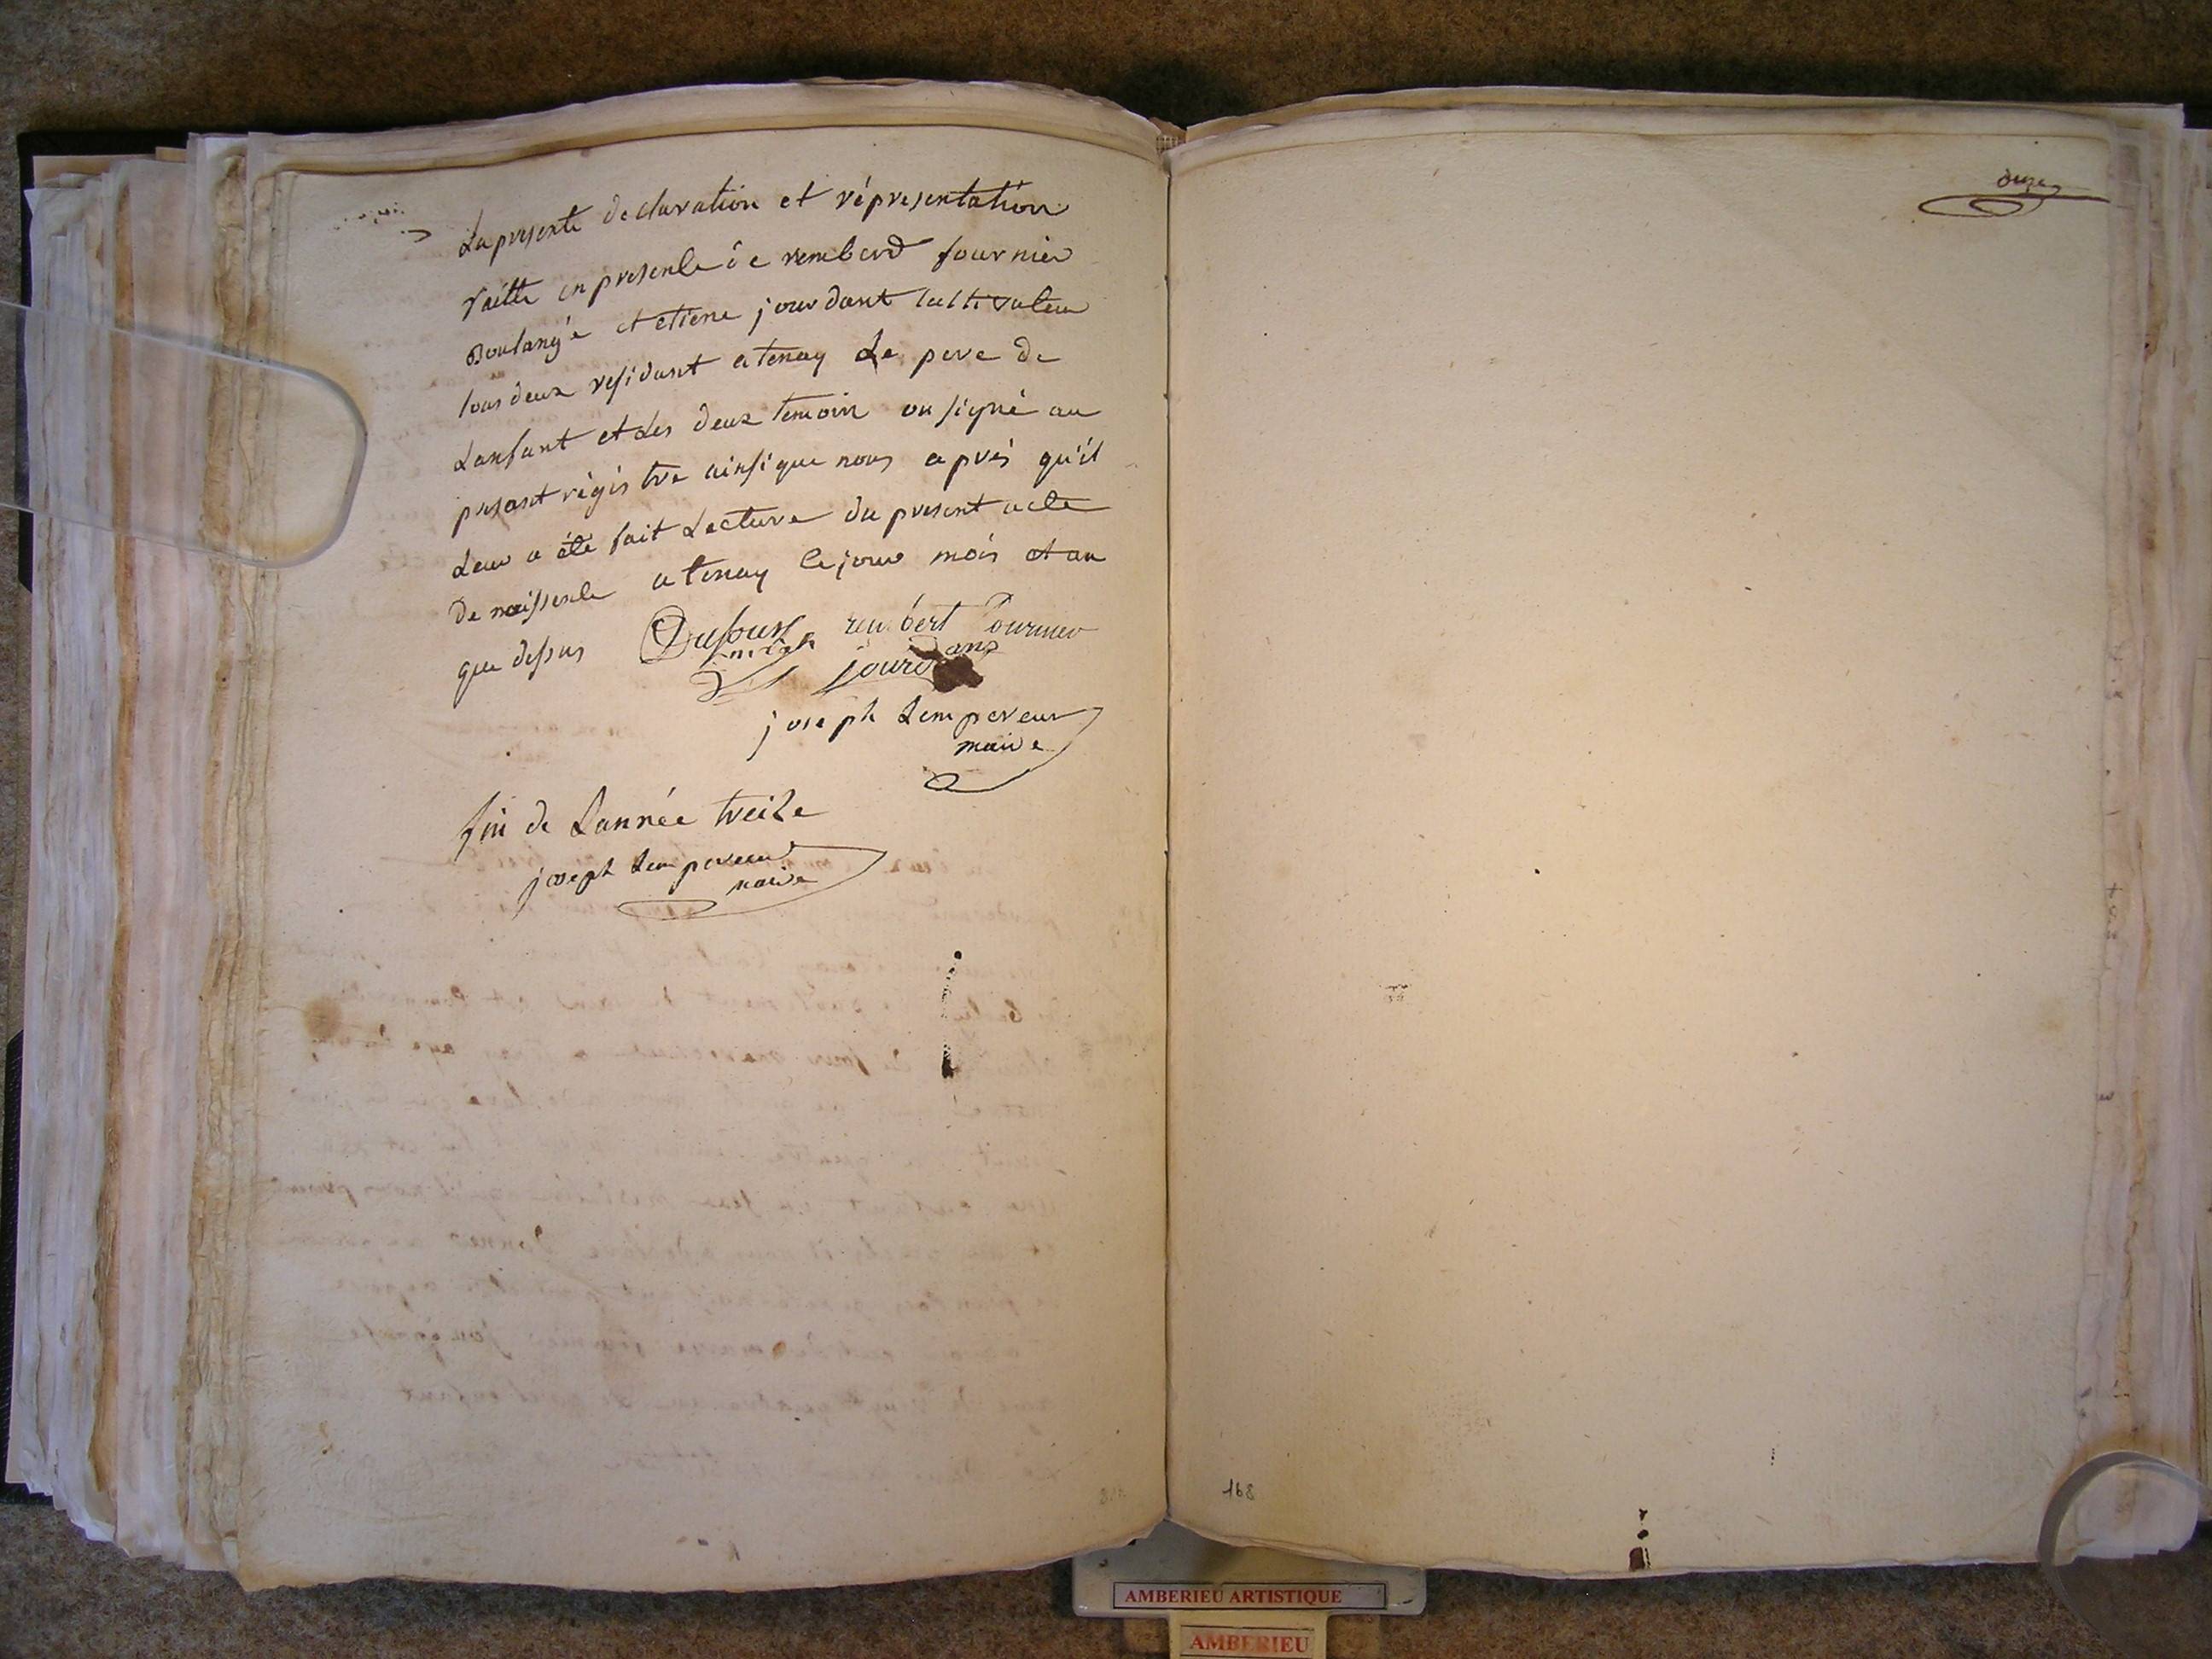 La presente declaration et répresentation
faitte en presense de rembert fournier
Boulangé et etiene jourdant cultivateur
tous deux residant a tenay Le pere de
Lanfant et Les deux temoin on signé au
presant régistre ainsi que nous après qu'il
Leur a été fait Lecture du present acte
de naissense a tenay le jour mois et an
que dessus Dufour rembert fournier
jourdans
joseph Lempereur
maire
fin de Lannée treize
joseph Lempereur
maire
onze
168
AMBERIEU ARTISTIQUE
AMBERIEU